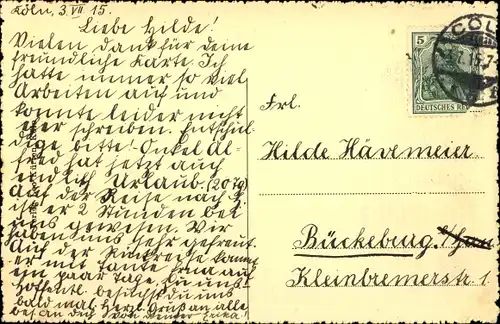 Köln, 3. VII 15.
Liebe Hilde!
Vielen dank für deine
freundliche Karte. Ich
hatte immer so viel
Arbeiten auf und
konnte leider nicht
eher schreiben. Entschul-
dige bitte! Onkel Al-
fred hat jetzt auch
endlich Urlaub. (20 Tg)
Auf der Reise nach
ist er 2 Stunden bei
uns gewesen. Wir
haben uns sehr gefreut.
Auf der Rückreise kommt
er mit Tante Erna auf
ein paar Tage zu uns.
Hoffentl. besuchst du uns
bald mal. Herzl. Gruß an alle
bes. an dich von deiner Erika
CÖLN
5
DEUTSCHES REICH
Frl.
Hilde Hävemeier
Bückeburg.
Kleinbremerstr. 1